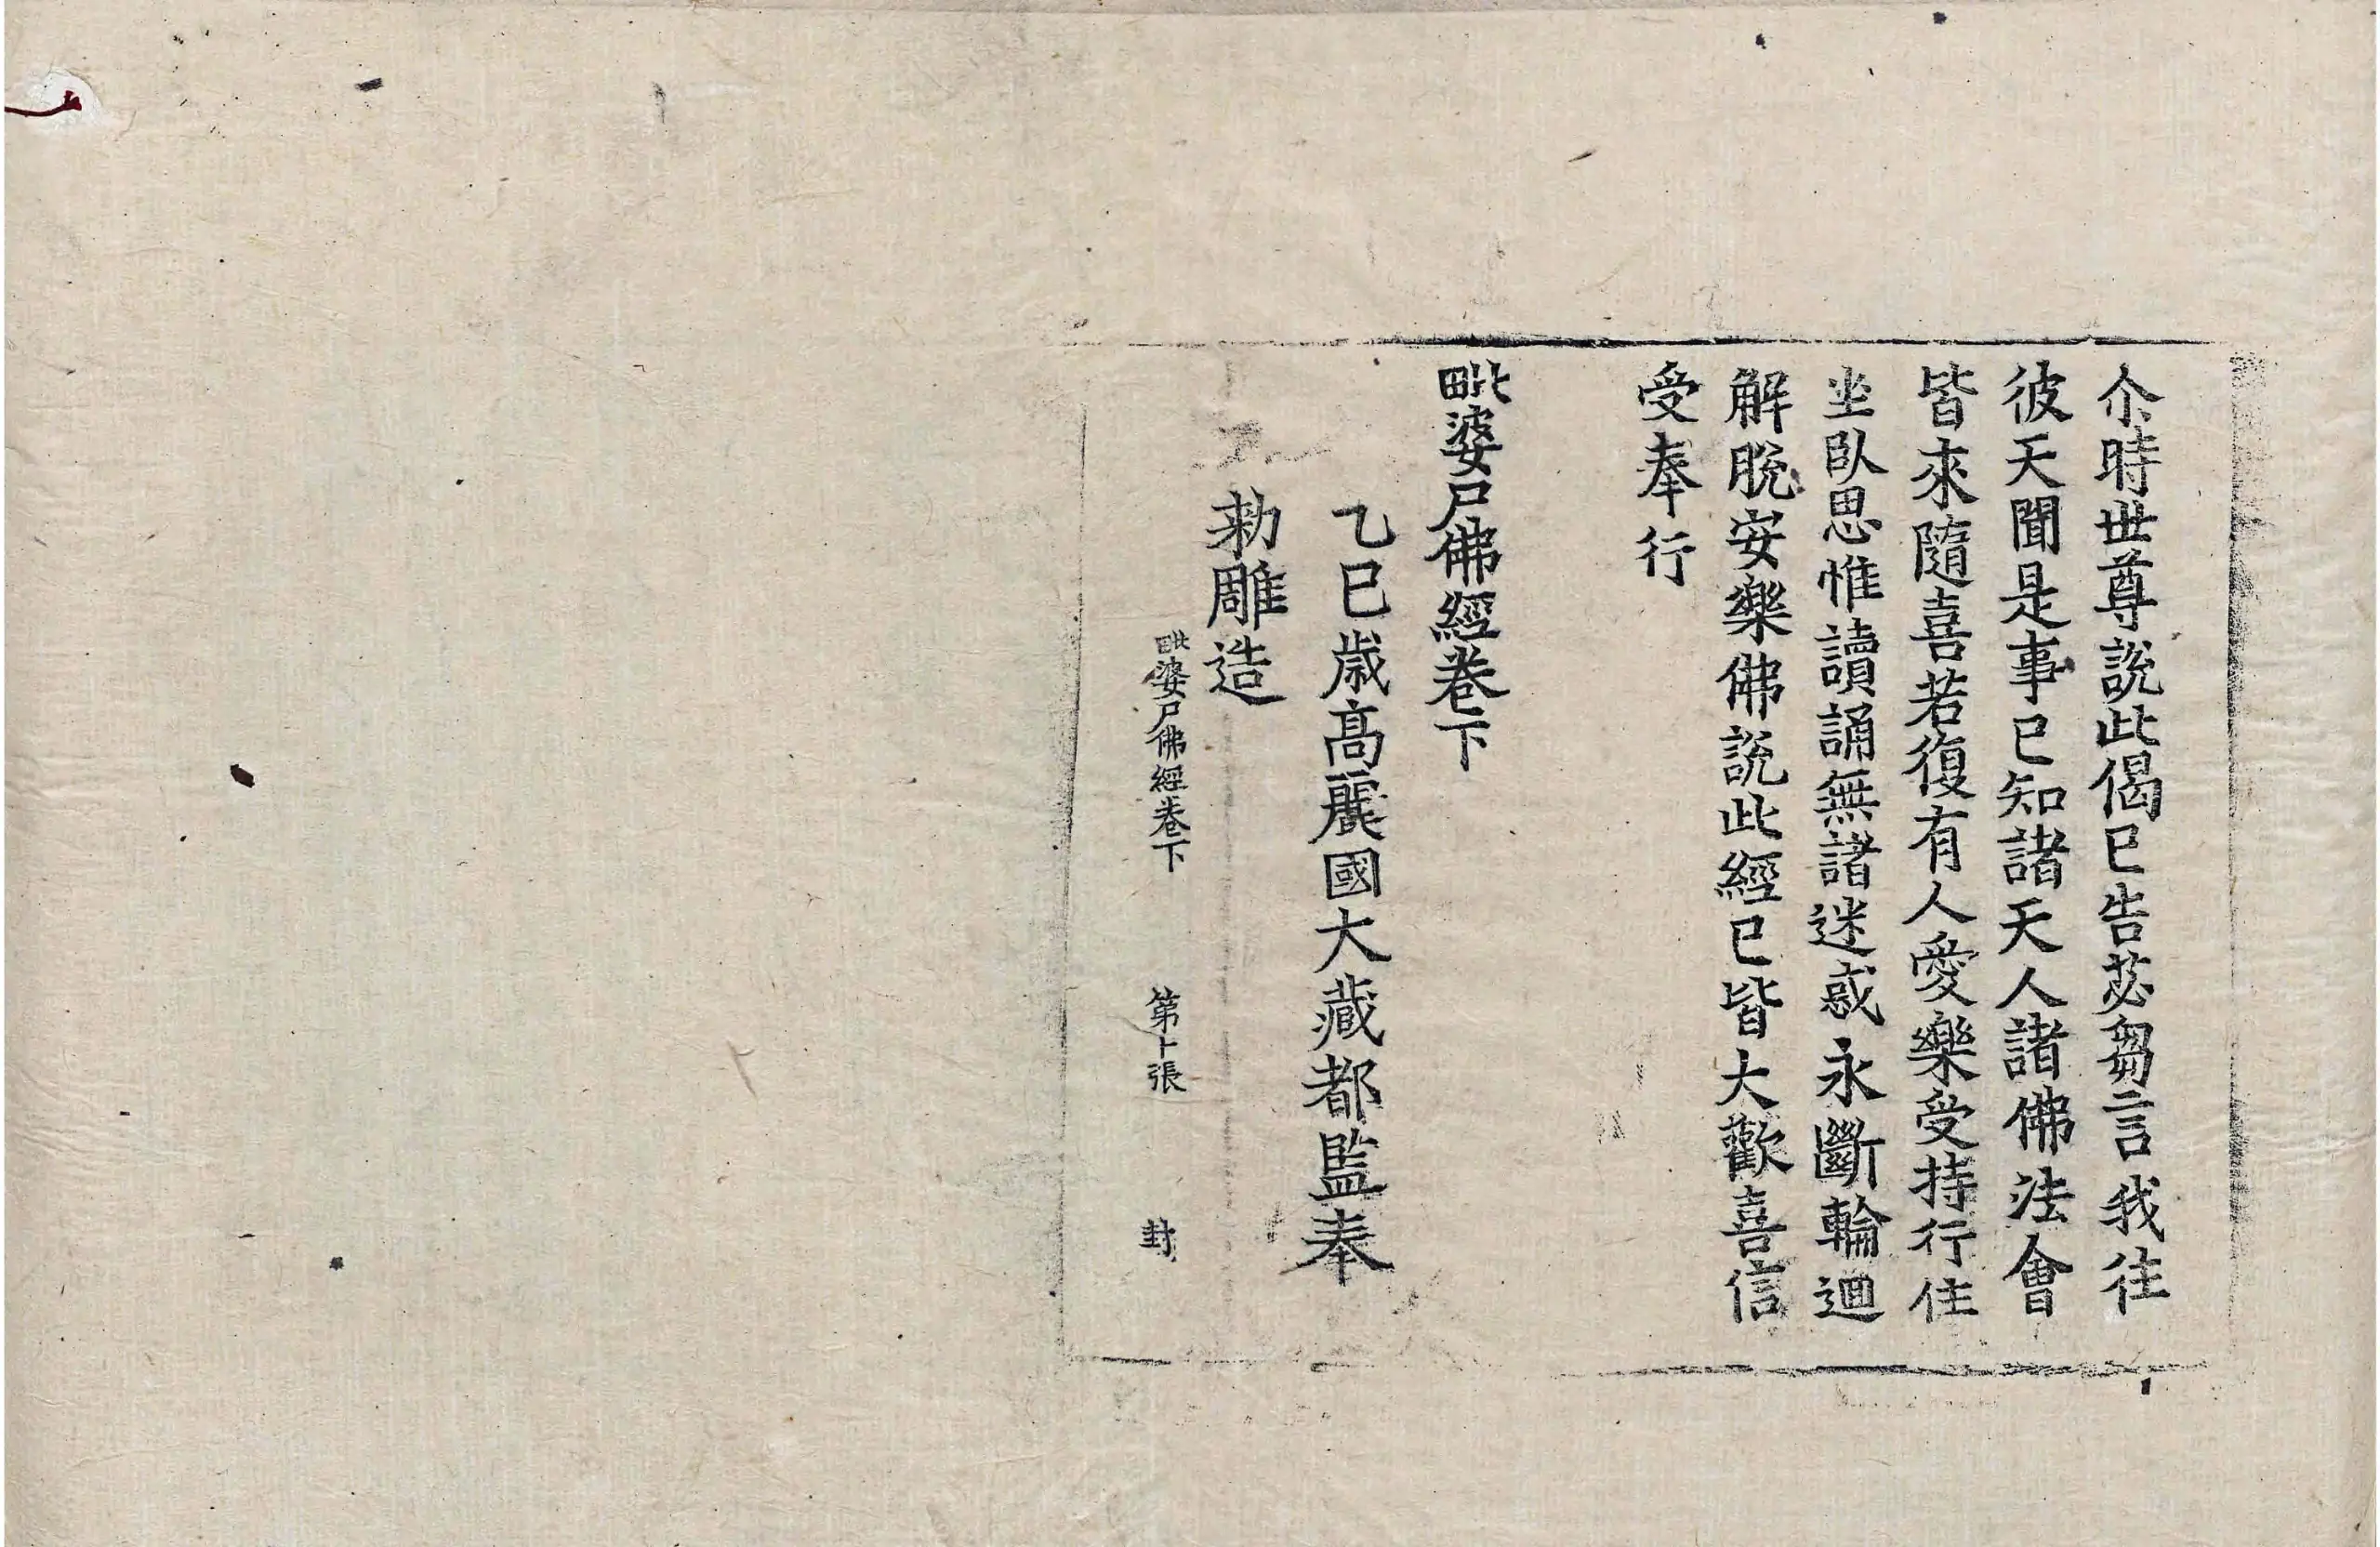 尒時世尊說此偈已告苾芻言我往
彼天聞是事已知諸天人諸佛法會
皆來隨喜若復有人愛樂受持行住
坐臥思惟讀誦無諸迷惑永斷輪迴
解脫安樂佛說此經已皆大歡喜信
受奉行
毗婆尸佛經卷下
乙巳歲髙麗國大藏都監奉
勅雕造
毗婆尸佛經卷下 第十張 封